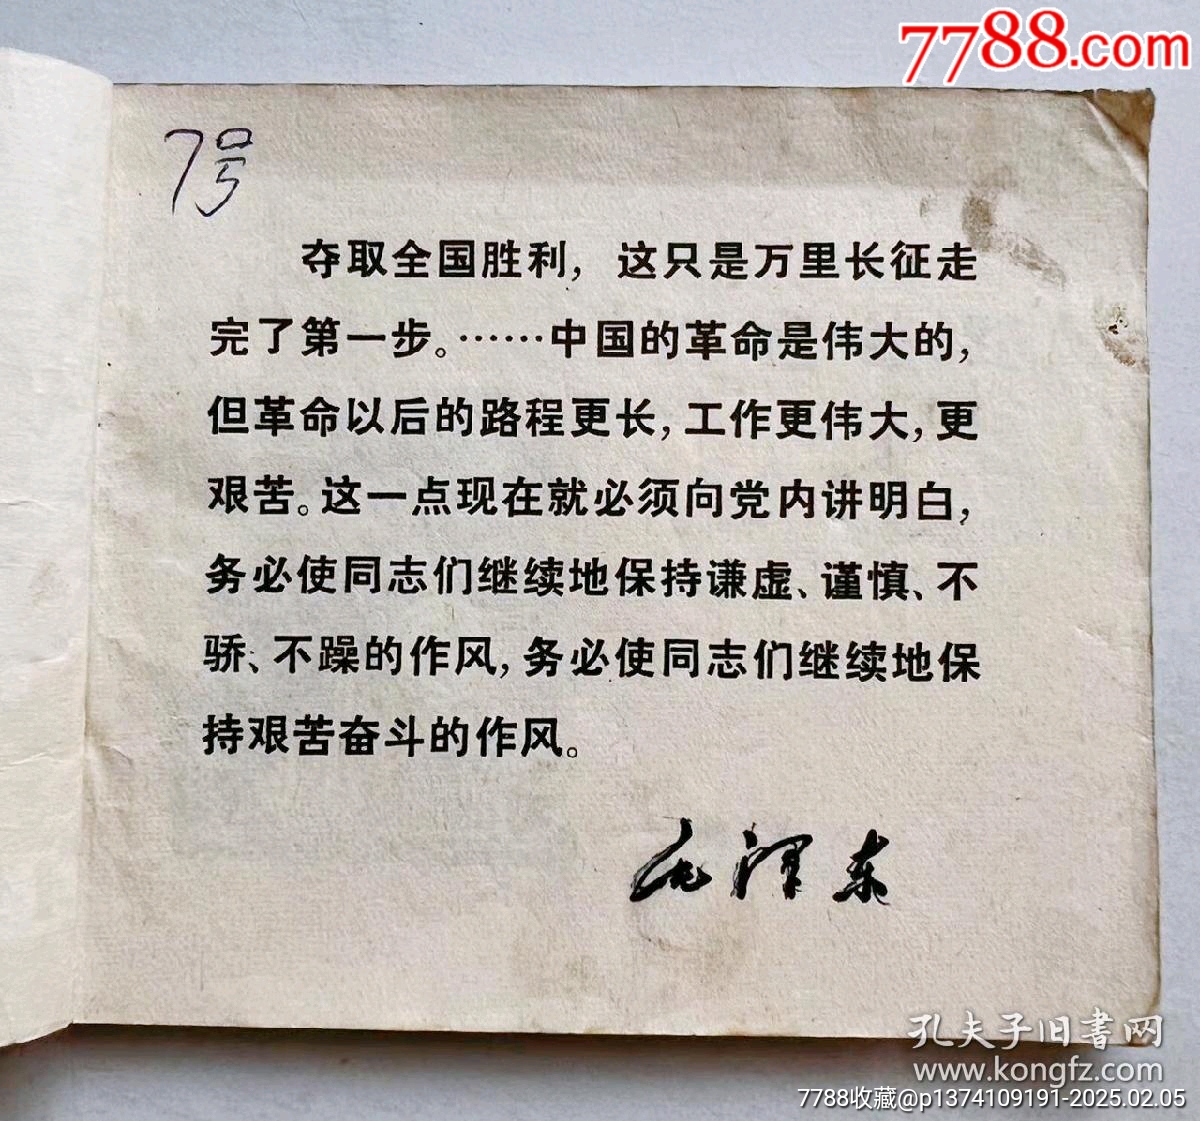 7788.com
7号
夺取全国胜利，这只是万里长征走
完了第一步。……中国的革命是伟大的，
但革命以后的路程更长，工作更伟大，更
艰苦。这一点现在就必须向党内讲明白，
务必使同志们继续地保持谦虚、谨慎、不
骄、不躁的作风，务必使同志们继续地保
持艰苦奋斗的作风。
毛泽东
孔夫子旧書网
www.kongfz.com
7788收藏@p1374109191-2025.02.05